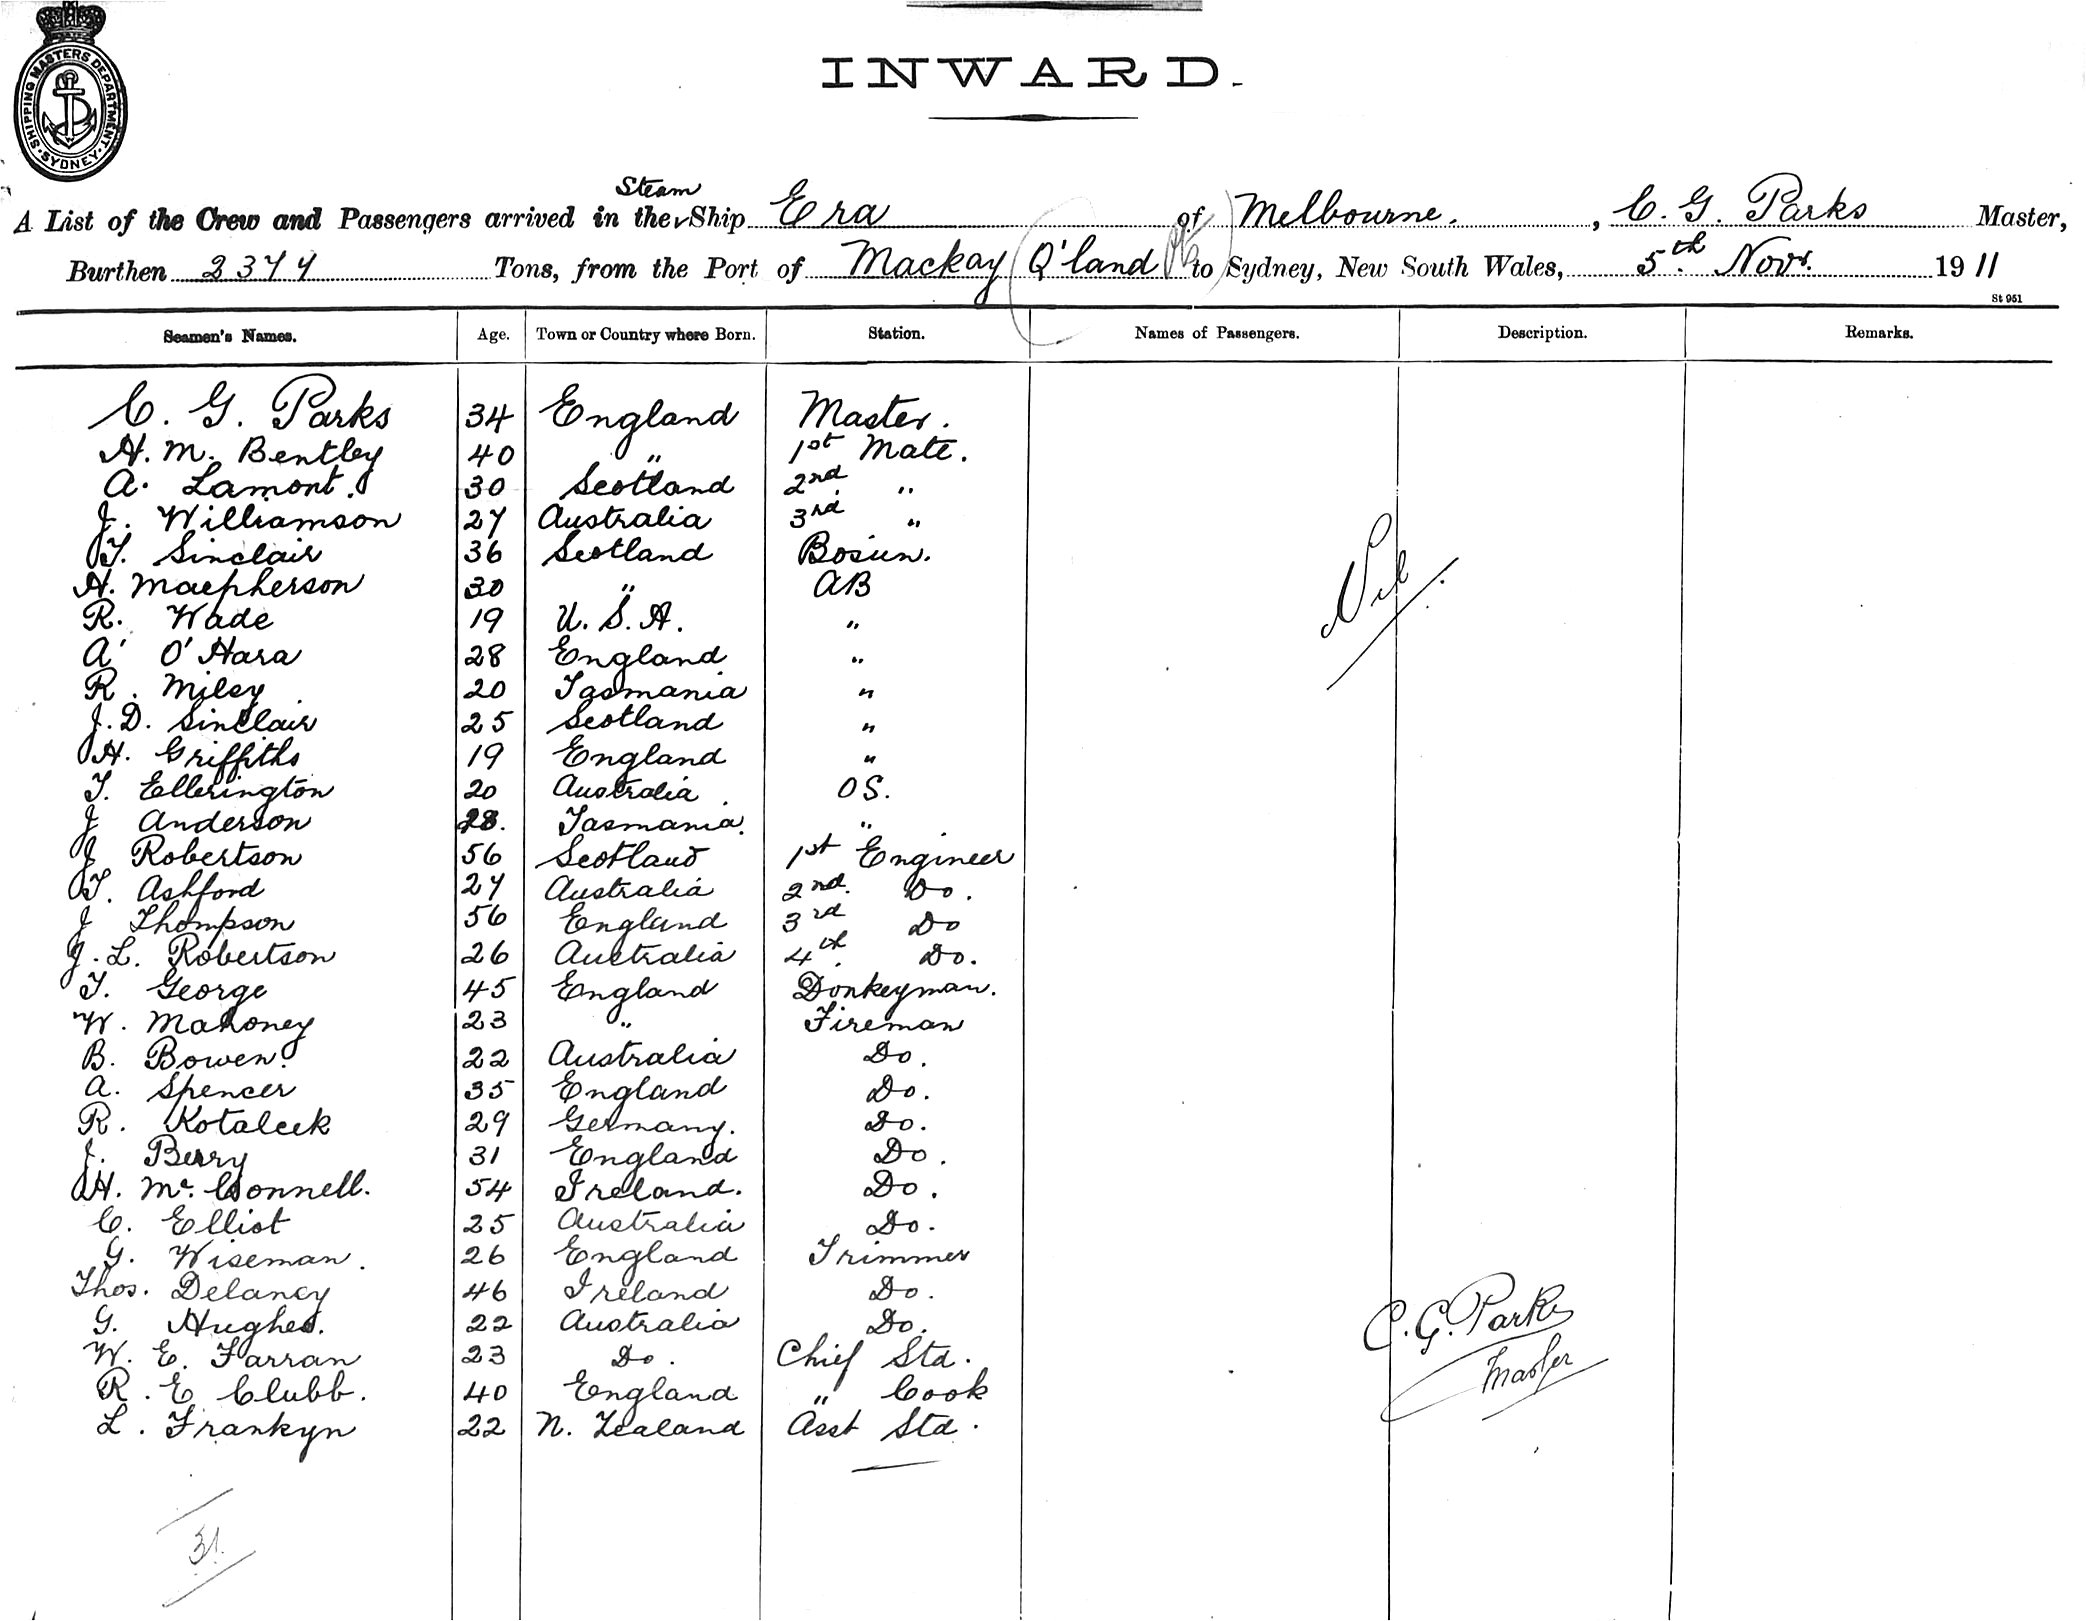 SHIPPING MASTERS DEPARTMENT · SYDNEY ·
INWARD.
Steam
A List of the Crew and Passengers arrived in the Ship Era of Melbourne. , C. G. Parks Master,
Burthen 2377 Tons, from the Port of Mackay Q'land to Sydney, New South Wales, 5th Novr. 1911
St 951
Seamen's Names. Age. Town or Country where Born. Station. Names of Passengers. Description. Remarks.
C. G. Parks 34 England Master.
H. M. Bentley 40 " 1st Mate.
A. Lamont. 30 Scotland 2nd "
J. Williamson 27 Australia 3rd "
T. Sinclair 36 Scotland Bosun.
H. Macpherson 30 " AB
R. Wade 19 U. S. A. "
A. O'Hara 28 England "
R. Miley 20 Tasmania "
J. D. Sinclair 25 Scotland "
H. Griffiths 19 England "
T. Ellerington 20 Australia. OS.
J Anderson 28. Tasmania. "
J Robertson 56 Scotland 1st Engineer
T. Ashford 27 Australia 2nd. Do.
J Thompson 56 England 3rd Do
J. L. Robertson 26 Australia 4th. Do.
T. George 45 England Donkeyman.
W. Mahoney 23 " Fireman
B. Bowen. 22 Australia Do.
A. Spencer 35 England Do.
R. Kotalcek 29 Germany. Do.
J. Berry 31 England Do.
H. Mc. Connell. 54 Ireland. Do.
C. Elliot 25 Australia Do.
G. Wiseman. 26 England Trimmer
Thos. Delaney 46 Ireland Do.
G. Hughes. 22 Australia Do.
W. E. Farran 23 Do. Chief Std.
R. E Clubb. 40 England " Cook
L. Frankyn 22 N. Zealand Asst Std.
Nil.
C. G. Parks
Master
31.